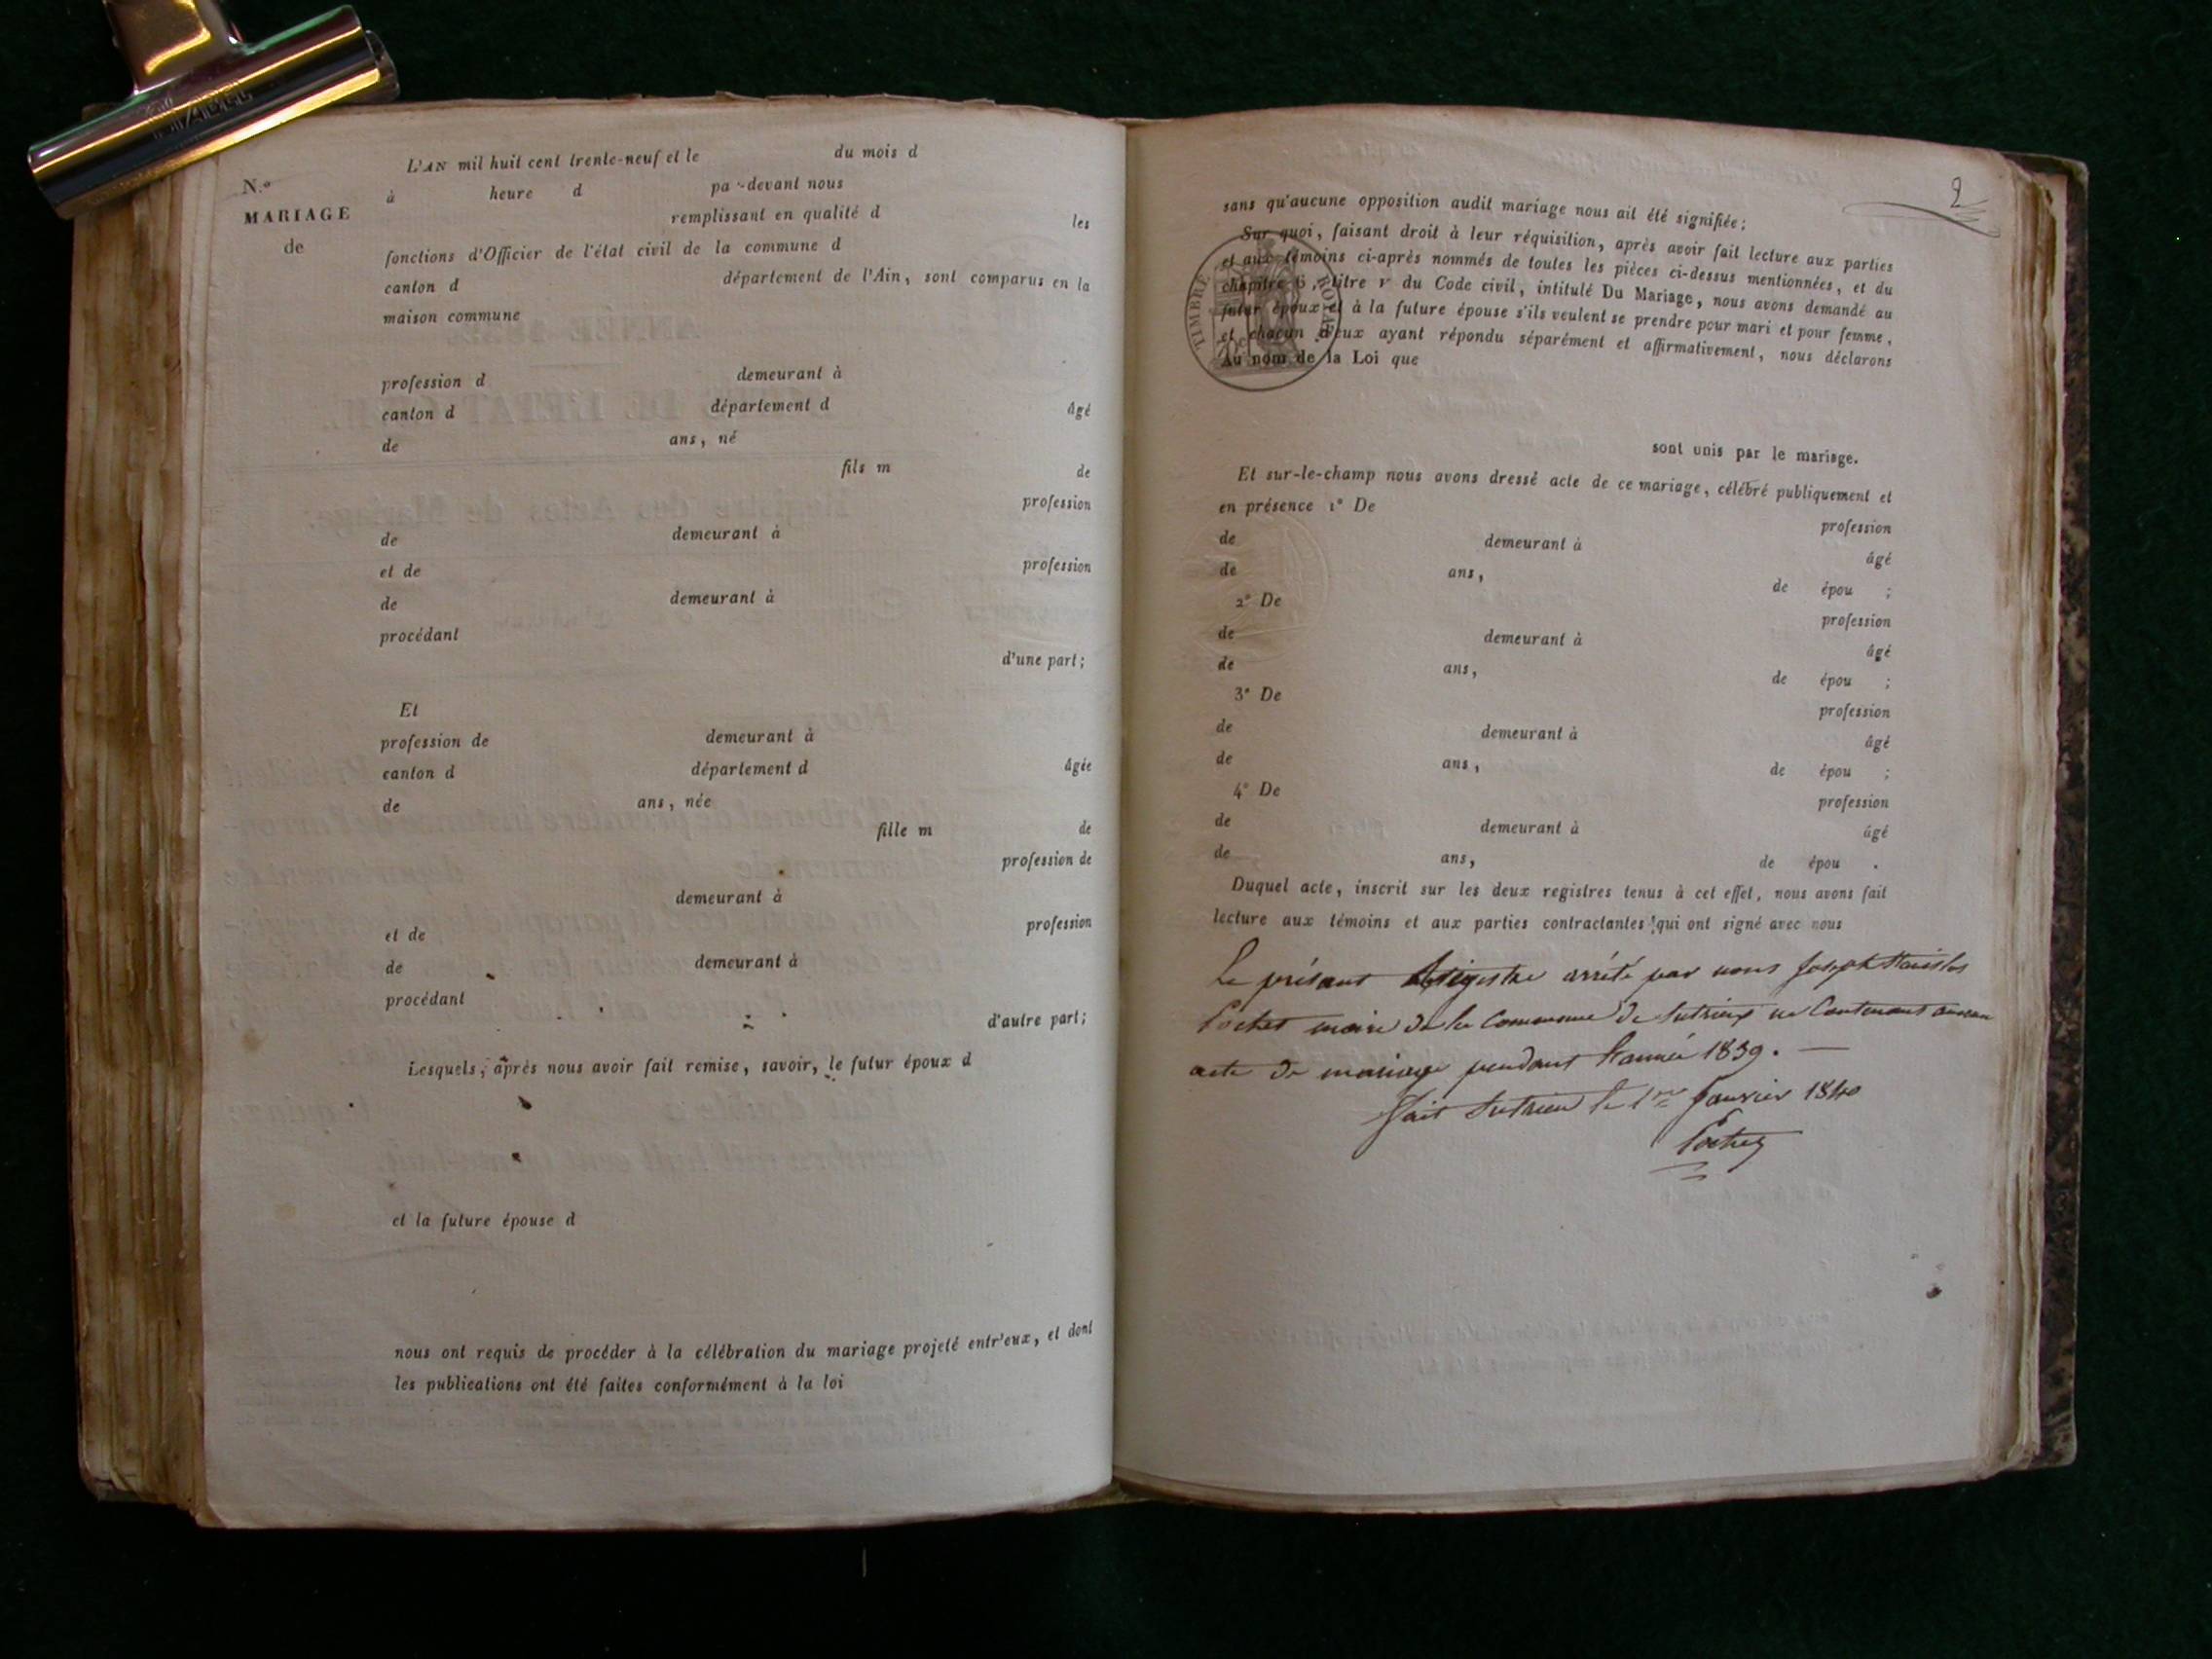 L'AN mil huit cent trente-neuf et le du mois d
N.º
à heure d pa-devant nous
MARIAGE
remplissant en qualité d les
de
fonctions d'Officier de l'état civil de la commune d
canton d département de l'Ain, sont comparus en la
maison commune
profession d demeurant à
canton d département d âgé
de ans, né
fils m de
profession
de demeurant à
et de profession
de demeurant à
procédant
d'une part;
Et
profession de demeurant à
canton d département d âgée
de ans, née
fille m de
profession de
demeurant à
et de profession
de demeurant à
procédant
d'autre part;
Lesquels, après nous avoir fait remise, savoir, le futur époux d
et la future épouse d
nous ont requis de procéder à la célébration du mariage projeté entr'eux, et dont
les publications ont été faites conformément à la loi
2
sans qu'aucune opposition audit mariage nous ait été signifiée;
Sur quoi, faisant droit à leur réquisition, après avoir fait lecture aux parties
et aux témoins ci-après nommés de toutes les pièces ci-dessus mentionnées, et du
chapitre 6, titre v du Code civil, intitulé Du Mariage, nous avons demandé au
futur époux et à la future épouse s'ils veulent se prendre pour mari et pour femme,
et chacun d'eux ayant répondu séparément et affirmativement, nous déclarons
Au nom de la Loi que
TIMBRE ROYAL
sont unis par le mariage.
Et sur-le-champ nous avons dressé acte de ce mariage, célébré publiquement et
en présence 1º De
profession
de demeurant à âgé
de ans, de épou ;
2º De profession
de demeurant à âgé
de ans, de épou ;
3º De profession
de demeurant à âgé
de ans, de épou ;
4º De profession
de demeurant à âgé
de ans, de épou .
Duquel acte, inscrit sur les deux registres tenus à cet effet, nous avons fait
lecture aux témoins et aux parties contractantes qui ont signé avec nous
Le présant Régistre arrété par nous Joseph Stanislas
Pochet maire de la Commune de Sutrieux ne Contenant aucun
acte de mariage pendant l'année 1839. —
fait Sutrieu le 1er Janvier 1840
Pochet